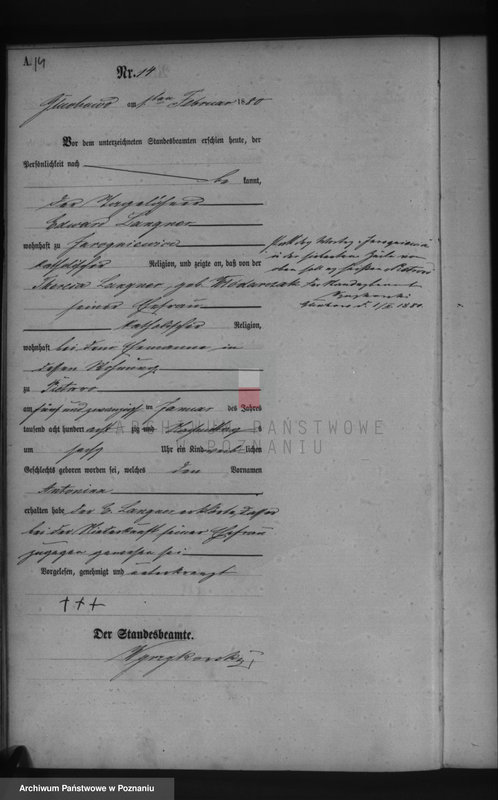 A. 14
Nr. 14
Gluchowo am 1ten Februar 1880
Vor dem unterzeichneten Standesbeamten erschien heute, der
Persönlichkeit nach
be kannt,
der Tagelöhner
Edward Langner
wohnhaft zu Jarogniewice
katholischer Religion, und zeigte an, daß von der
Theresia Langner, geb. Włodarczak
seiner Ehefrau
katholischer Religion,
wohnhaft bei dem Ehemanne, in
dessen Wohnung
zu Piotrowo
am fünf und zwanzigsten Januar des Jahres
tausend acht hundert acht zig und
um sechs Uhr ein Kind weiblichen
Geschlechts geboren worden sei, welches den Vornamen
Antonina
erhalten habe, der E. Langner erklärte, daß er
bei der Niederkunft seiner Ehefrau
zugegen gewesen sei
Vorgelesen, genehmigt und unterkreuzt
+++
Der Standesbeamte.
Statt des Wortes Jarogniewice
in der siebenten Zeile von
oben soll es heißen Piotrowo
der Standesbeamte
Gluchowo d. 1/II 1880.
ARCHIWUM PAŃSTWOWE
W POZNANIU
Archiwum Państwowe w Poznaniu